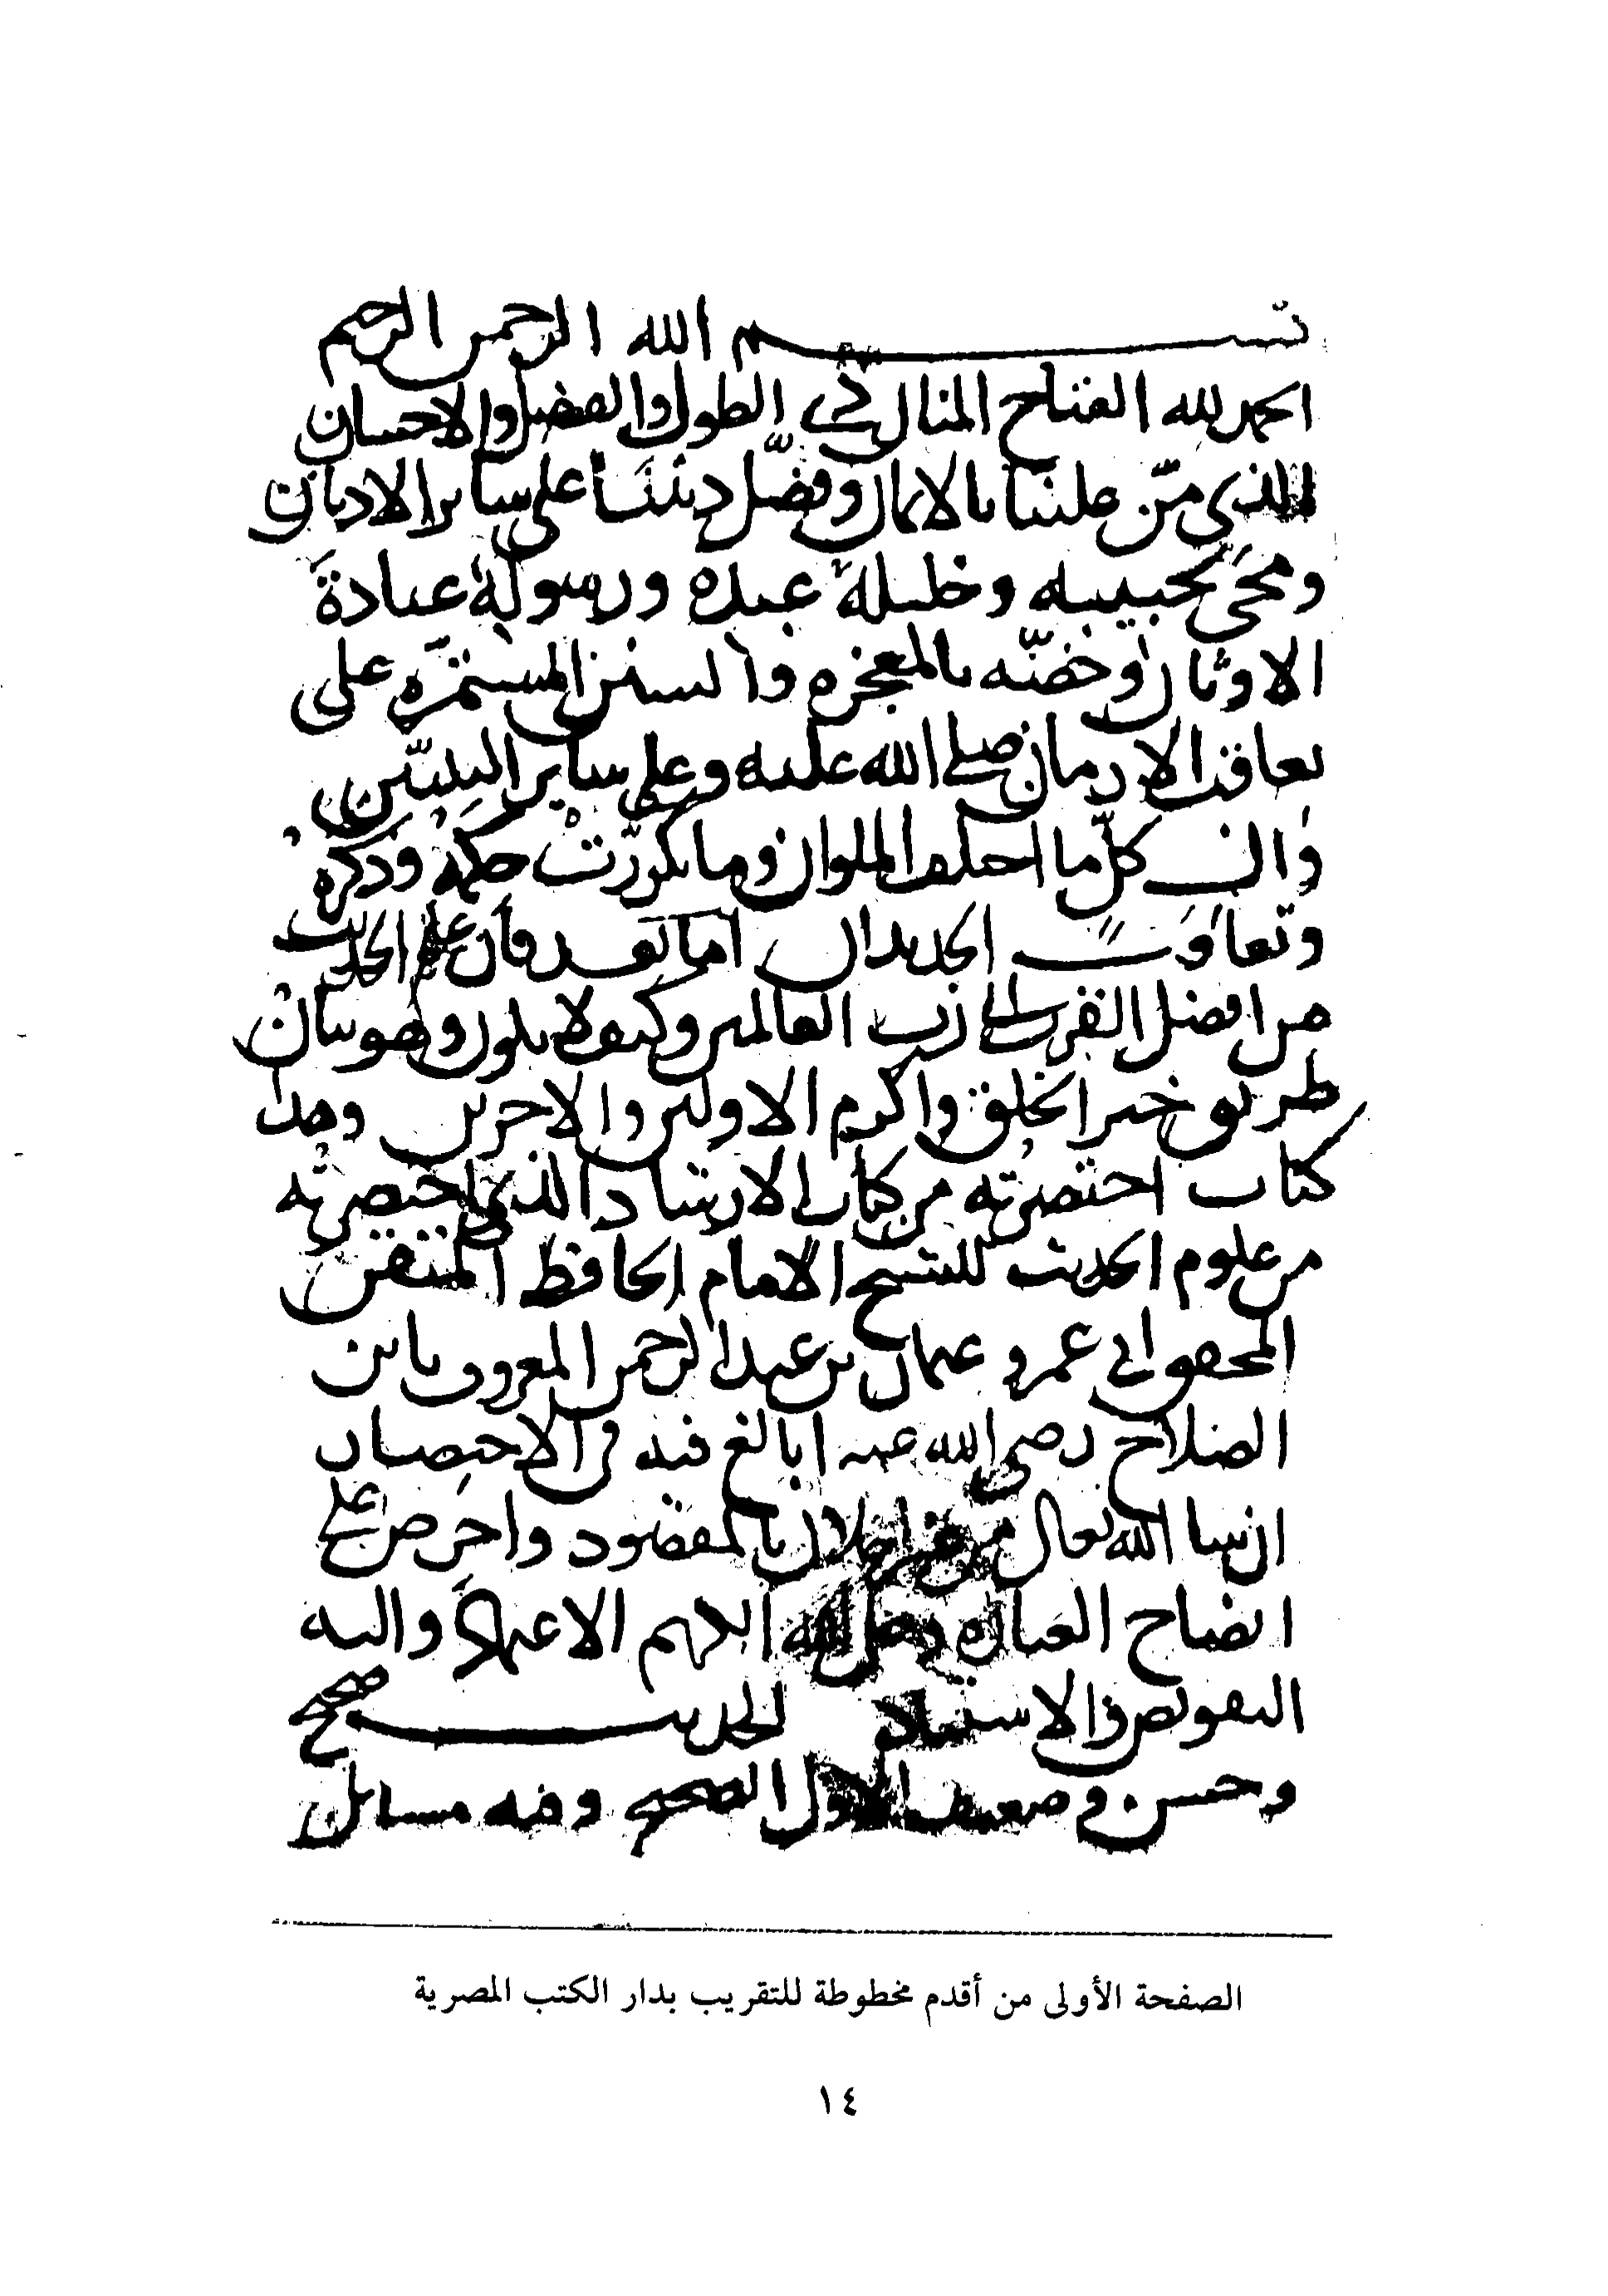 بسم الله الرحمن الرحيم
الحمد لله الفتاح المنان ذي الطول والفضل والاحسان
الذي منّ علينا بالايمان وفضّل ديننا على ساير الاديان
ومحى بحبيبه وخليله عبده ورسوله عبادة
الاوثان وخصّه بالمعجزه والسنن المستمرّه على
تعاقب الازمان صلى الله عليه وعلى ساير النبيّين
وال كلّ ما اختلف الملوان وما تكررّت حكمه وذكره
وتعاقب الجديدان اما بعد فان علم الحديث
من افضل القرب الى رب العالمين وكيف لا يكون وهو بيان
طريق خير الخلق واكرم الاولين والاخرين وهذا
كتاب اختصرته من كتاب الارشاد الذي اختصرته
من علوم الحديث للشيخ الامام الحافظ المتقن
المحقق ابي عمرو عثمان بن عبد الرحمن المعروف بابن
الصلاح رضي الله عنه ابالغ فيه في الاختصار
ان شا الله تعالى من غير اخلال بالمقصود واحرص على
ايضاح العباره وعلى الله الكريم الاعتماد واليه
التفويض والاستناد الحديث صحيح
وحسن وضعيف الاول الصحيح وفيه مسايل
الصفحة الأولى من أقدم مخطوطة للتقريب بدار الكتب المصرية
١٤